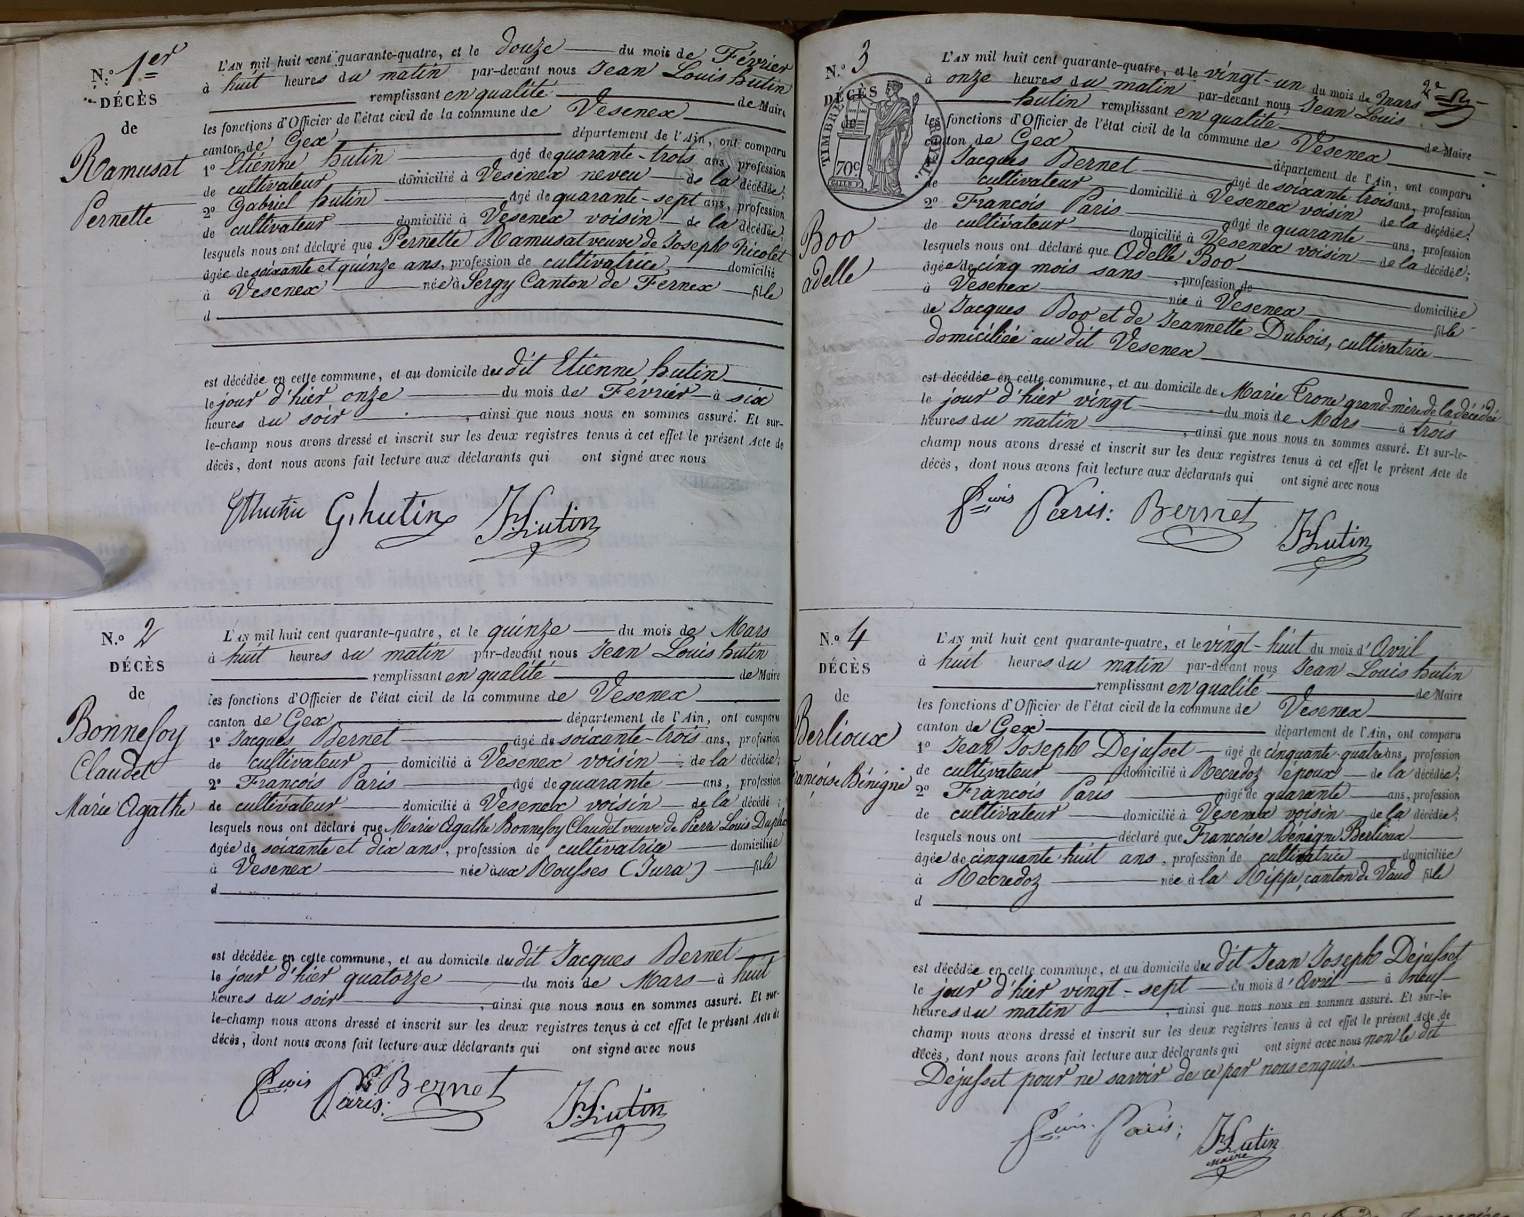 N.º 1er
DÉCÈS
de
Ramusat
Pernette
L'AN mil huit cent quarante-quatre, et le douze du mois de Février
à huit heures du matin par-devant nous Jean Louis hutin
remplissant en qualité de Maire
les fonctions d'Officier de l'état civil de la commune de Vesenex
canton de Gex département de l'Ain, ont comparu
1º Etienne hutin âgé de quarante-trois ans, profession
de cultivateur domicilié à Vesenex neveu de la décédée;
2º Gabriel hutin âgé de quarante-sept ans, profession
de cultivateur domicilié à Vesenex voisin de la décédée;
lesquels nous ont déclaré que Pernette Ramusat veuve de Joseph Nicolet
âgée de soixante et quinze ans, profession de cultivatrice domicilié
à Vesenex née à Sergy Canton de Fernex fille
d
est décédée en cette commune, et au domicile du dit Etienne hutin
le jour d'hier onze du mois de Février à six
heures du soir, ainsi que nous nous en sommes assuré. Et sur-
le-champ nous avons dressé et inscrit sur les deux registres tenus à cet effet le présent Acte de
décès, dont nous avons fait lecture aux déclarants qui ont signé avec nous
Ethutin G. hutin JLutin
N.º 2
DÉCÈS
de
Bonnefoy
Claudet
Marie Agathe
L'AN mil huit cent quarante-quatre, et le quinze du mois de Mars
à huit heures du matin par-devant nous Jean Louis hutin
remplissant en qualité de Maire
les fonctions d'Officier de l'état civil de la commune de Vesenex
canton de Gex département de l'Ain, ont comparu
1º Jacques Bernet âgé de soixante-trois ans, profession
de cultivateur domicilié à Vesenex voisin de la décédée;
2º François Paris âgé de quarante ans, profession
de cultivateur domicilié à Vesenex voisin de la décédé;
lesquels nous ont déclaré que Marie Agathe Bonnefoy Claudet veuve de Pierre Louis
âgée de soixante et dix ans, profession de cultivatrice domiciliée
à Vesenex née aux Rousses (Jura) fille
d
est décédée en cette commune, et au domicile du dit Jacques Bernet
le jour d'hier quatorze du mois de Mars à huit
heures du soir, ainsi que nous nous en sommes assuré. Et sur-
le-champ nous avons dressé et inscrit sur les deux registres tenus à cet effet le présent Acte de
décès, dont nous avons fait lecture aux déclarants qui ont signé avec nous
Paris. Bernet JLutin
N.º 3
DÉCÈS
de
TIMBRE
70c
Boo
adelle
2e
L'AN mil huit cent quarante-quatre, et le vingt-un du mois de Mars
à onze heures du matin par-devant nous Jean Louis
hutin remplissant en qualité de Maire
les fonctions d'Officier de l'état civil de la commune de Vesenex
canton de Gex département de l'Ain, ont comparu
Jacques Bernet âgé de soixante trois ans, profession
de cultivateur domicilié à Vesenex voisin de la décédée;
2º François Paris âgé de quarante ans, profession
de cultivateur domicilié à Vesenex voisin de la décédée;
lesquels nous ont déclaré que Adelle Boo
âgée de cinq mois sans, profession de
à Vesenex née à Vesenex domiciliée
de Jacques Boo et de Jeannette Dubois, cultivatrice fille
domiciliée au dit Vesenex
est décédée en cette commune, et au domicile de Marie Trone grand-mère de la décédée
le jour d'hier vingt du mois de Mars à trois
heures du matin, ainsi que nous nous en sommes assuré. Et sur-le-
champ nous avons dressé et inscrit sur les deux registres tenus à cet effet le présent Acte de
décès, dont nous avons fait lecture aux déclarants qui ont signé avec nous
Paris: Bernet JLutin
N.º 4
DÉCÈS
de
Berlioux
Françoise Bénigne
L'AN mil huit cent quarante-quatre, et le vingt-huit du mois d'Avril
à huit heures du matin par-devant nous Jean Louis hutin
remplissant en qualité de Maire
les fonctions d'Officier de l'état civil de la commune de Vesenex
canton de Gex département de l'Ain, ont comparu
1º Jean Joseph Dejusset âgé de cinquante-quatre ans, profession
de cultivateur domicilié à Recredoz époux de la décédée;
2º François Paris âgé de quarante ans, profession
de cultivateur domicilié à Vesenex voisin de la décédée;
lesquels nous ont déclaré que Françoise Bénigne Berlioux
âgée de cinquante huit ans, profession de cultivatrice domiciliée
à Recredoz née à la Rippe, canton de Vaud fille
d
est décédée en cette commune, et au domicile du dit Jean Joseph Dejusset
le jour d'hier vingt-sept du mois d'Avril à neuf
heures du matin, ainsi que nous nous en sommes assuré. Et sur-le-
champ nous avons dressé et inscrit sur les deux registres tenus à cet effet le présent Acte de
décès, dont nous avons fait lecture aux déclarants qui ont signé avec nous non le dit
Dejusset pour ne savoir de ce par nous enquis.
Paris; JLutin
maire